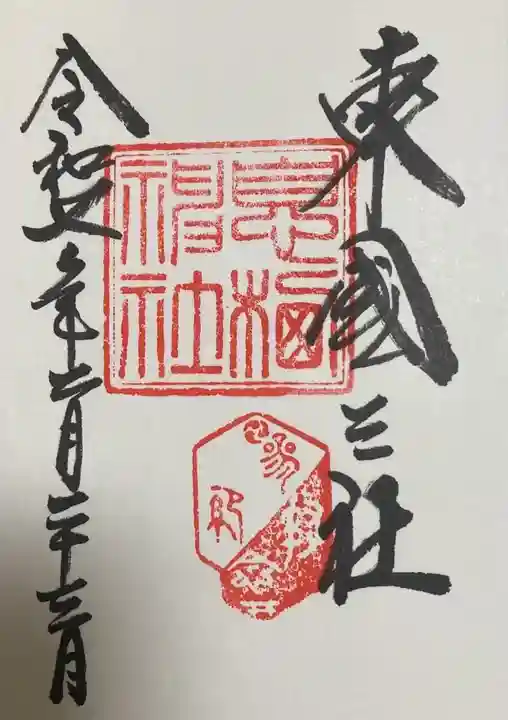 東國三社
息栖
神社
参拝
令和六年二月二十三日